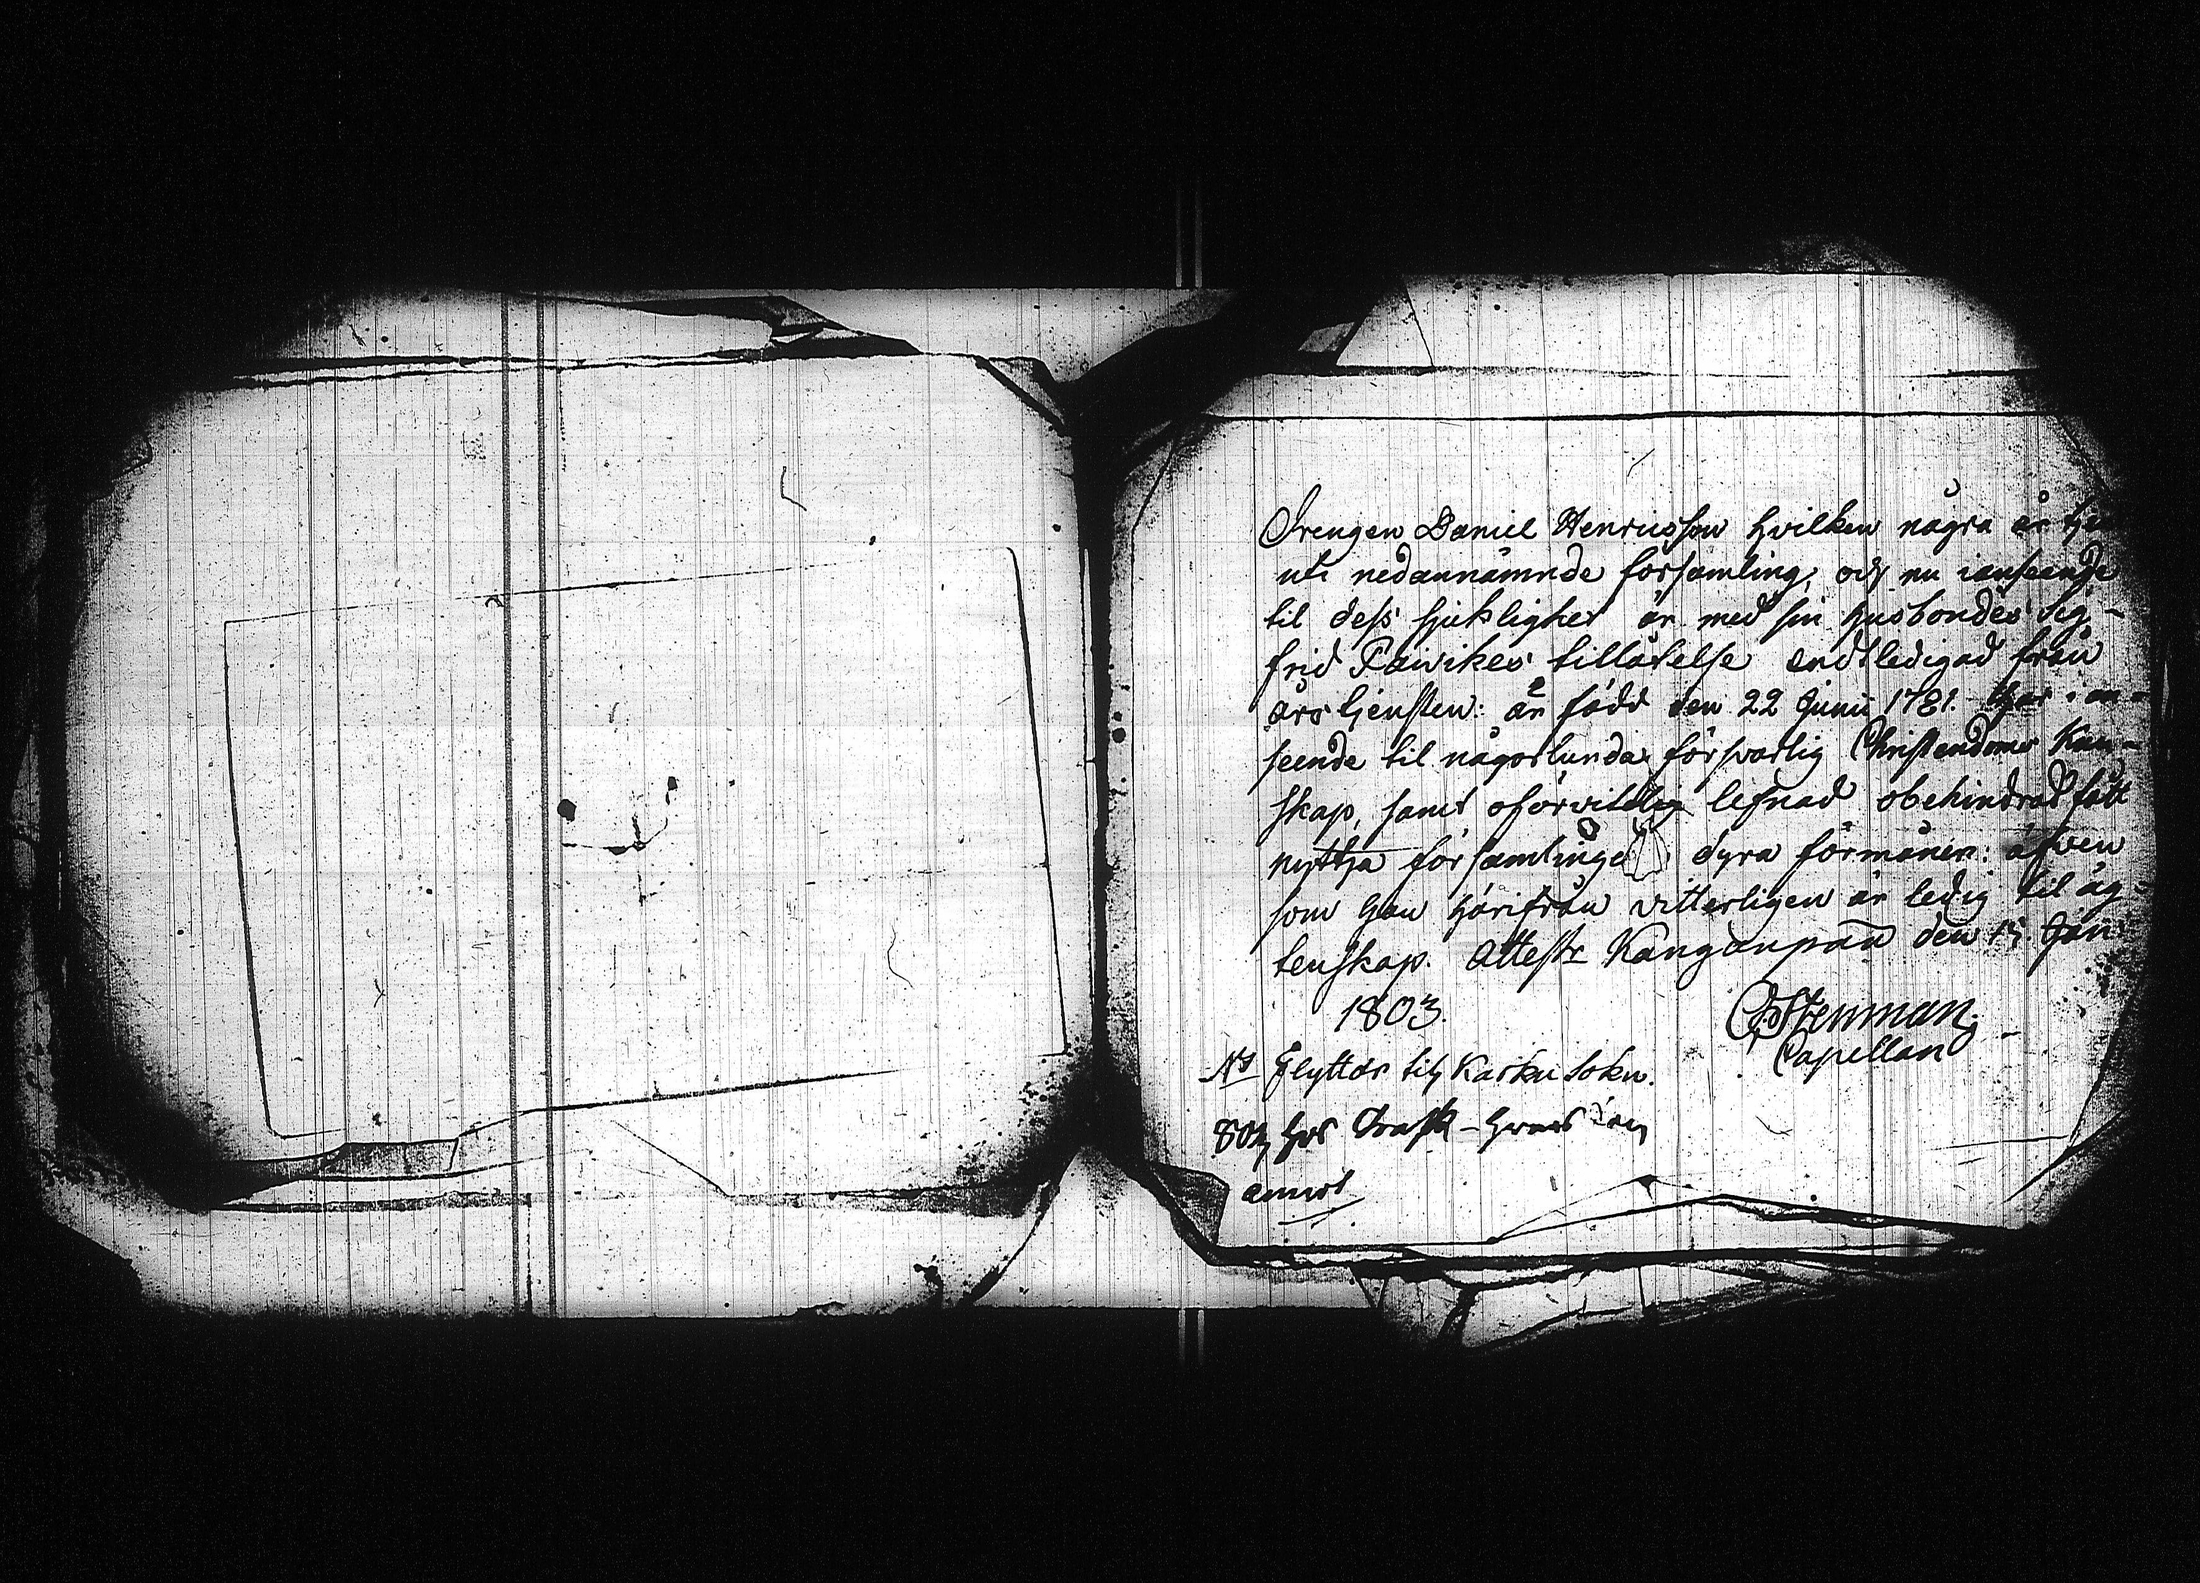 Drengen Daniel Henricsson hvilken några år
uti nedannämnde församling, och nu i anseende
til dess sjuklighet är med sin husbondes Sig-
frid Päivikes tillåtelse endtledigad från
årstjensten: är född den 22 Junii 1781. Har i an-
seende til någorlunda försvarlig Christendoms Kun-
skap, samt oförvitelig lefnad obehindrad fått
nyttja församlinge dyra förmåner: äfven
som han härifrån vitterligen är ledig til äg
tenskap. Attestr Kanganpää den 15 Jan
1803. Stenman
Capellan
Flyttar til Karku Sokn.